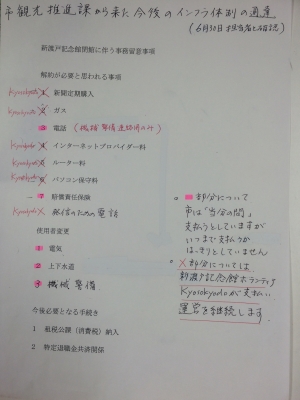 市観光推進課から来た今後のインフラ体制の通達
(6月30日担当者と確認)
新渡戸記念館閉館に伴う事務留意事項
解約が必要と思われる事項
Kyosokyodo × 1 新聞定期購入
Kyosokyodo × 2 ガス
3 電話 (機械警備連絡用のみ)
Kyosokyodo × 4 インターネットプロバイダー料
Kyosokyodo × 5 ルーター料
Kyosokyodo × 6 パソコン保守料
7 賠償責任保険
Kyosokyodo × 発信のための電話
使用者変更
1 電気
2 上下水道
3 機械警備
今後必要となる手続き
1 租税公課(消費税)納入
2 特定退職金共済関係
部分について
市は「当分の間」
支払うとしていますが
いつまで支払うかは
はっきりとしていません
○ ×部分については
新渡戸記念館ボランティア
Kyosokyodoが支払い
運営を継続します。